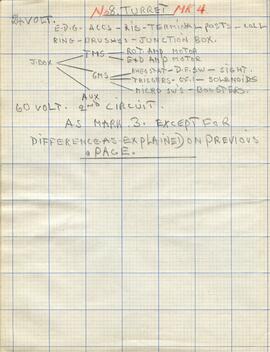 No 8. TURRET MK 4.
24 VOLT.
E.D.G - ACCS - AIB - TERMINAL POSTS - COLL
RING - BRUSHES - JUNCTION BOX.
TMS ROT. AMP MOTOR
EXD AMP MOTOR
J.BOX
RHEOSTAT - D.F.SW - SIGHT.
GMS TRIGGERS - C.F.I - SOLENOIDS
MICRO SW'S - BOOSTERS.
AUX
60 VOLT. 2ND CIRCUIT.
AS MARK. 3. EXCEPT FOR
DIFFERENCE AS EXPLAINED ON PREVIOUS
PAGE.